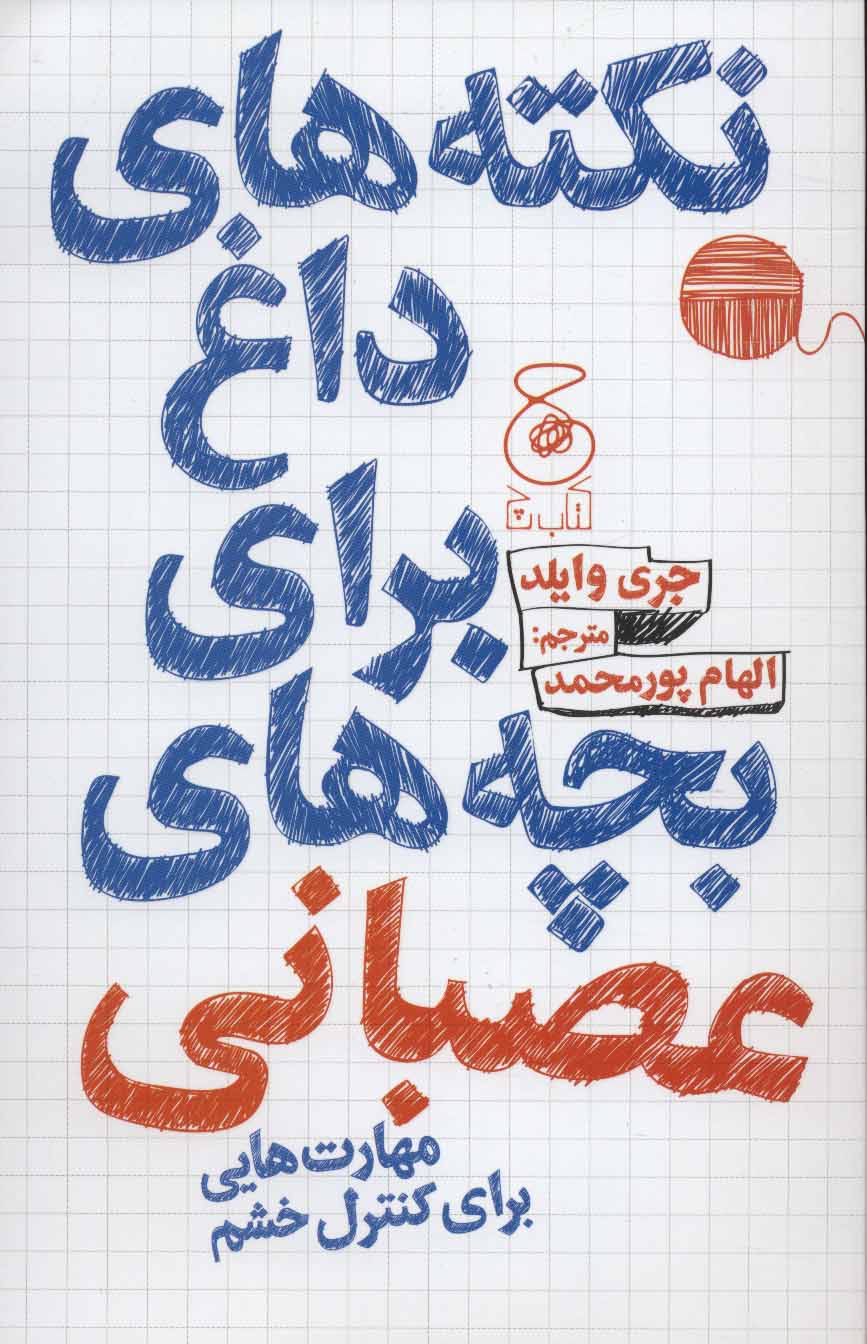 نکته‌های
داغ
کتاب چ
برای
جری وایلد
مترجم:
الهام پورمحمد
بچه‌های
عصبانی
مهارت‌هایی
برای کنترل خشم